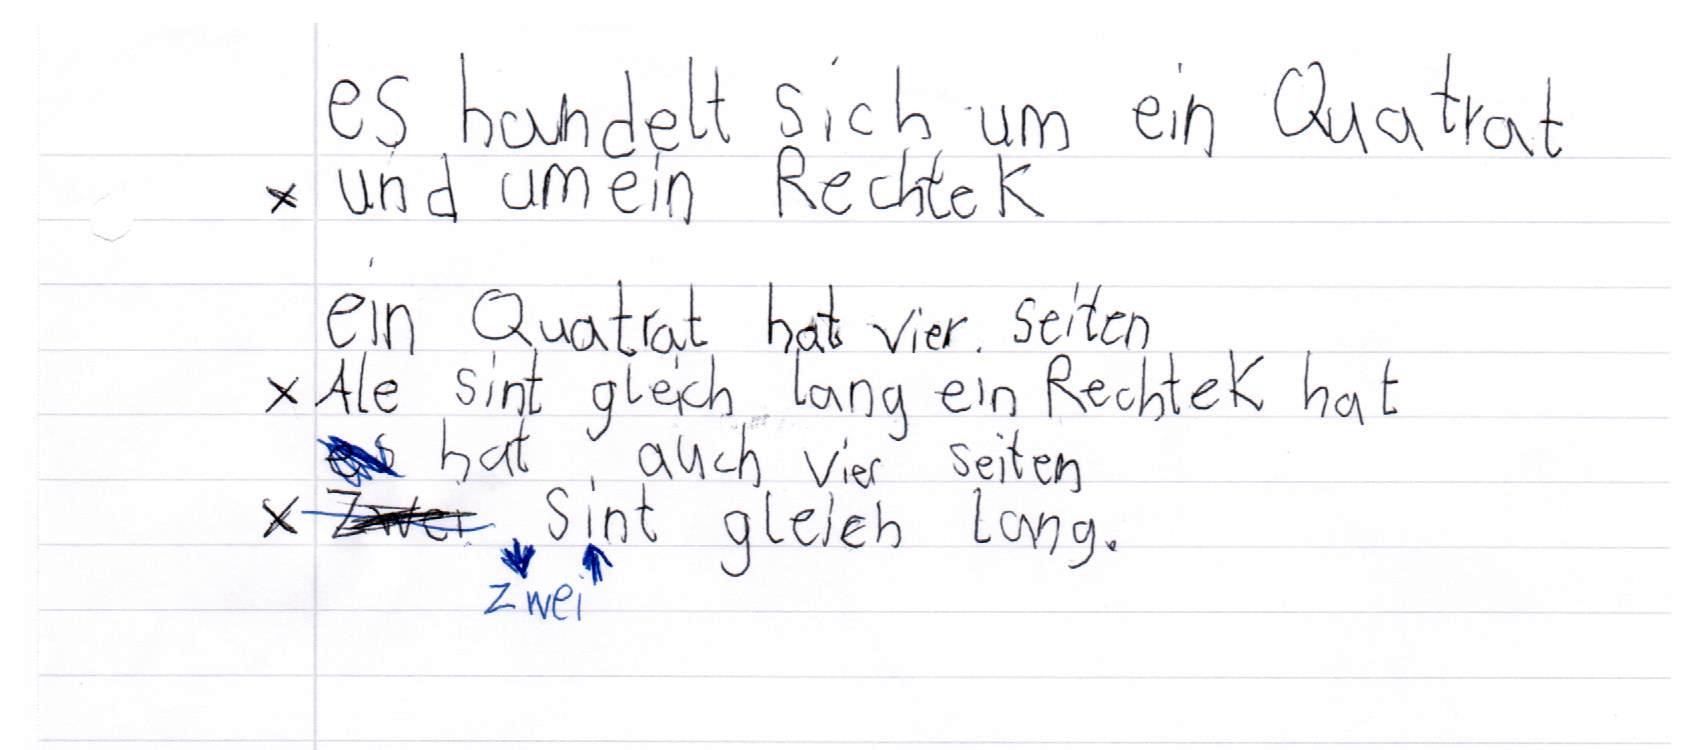 es handelt sich um ein Quatrat
x und um ein Rechtek
ein Quatrat hat vier. seiten
x Ale sint gleich lang ein Rechtek hat
es hat auch vier seiten
x Zwei sint gleich lang.
zwei